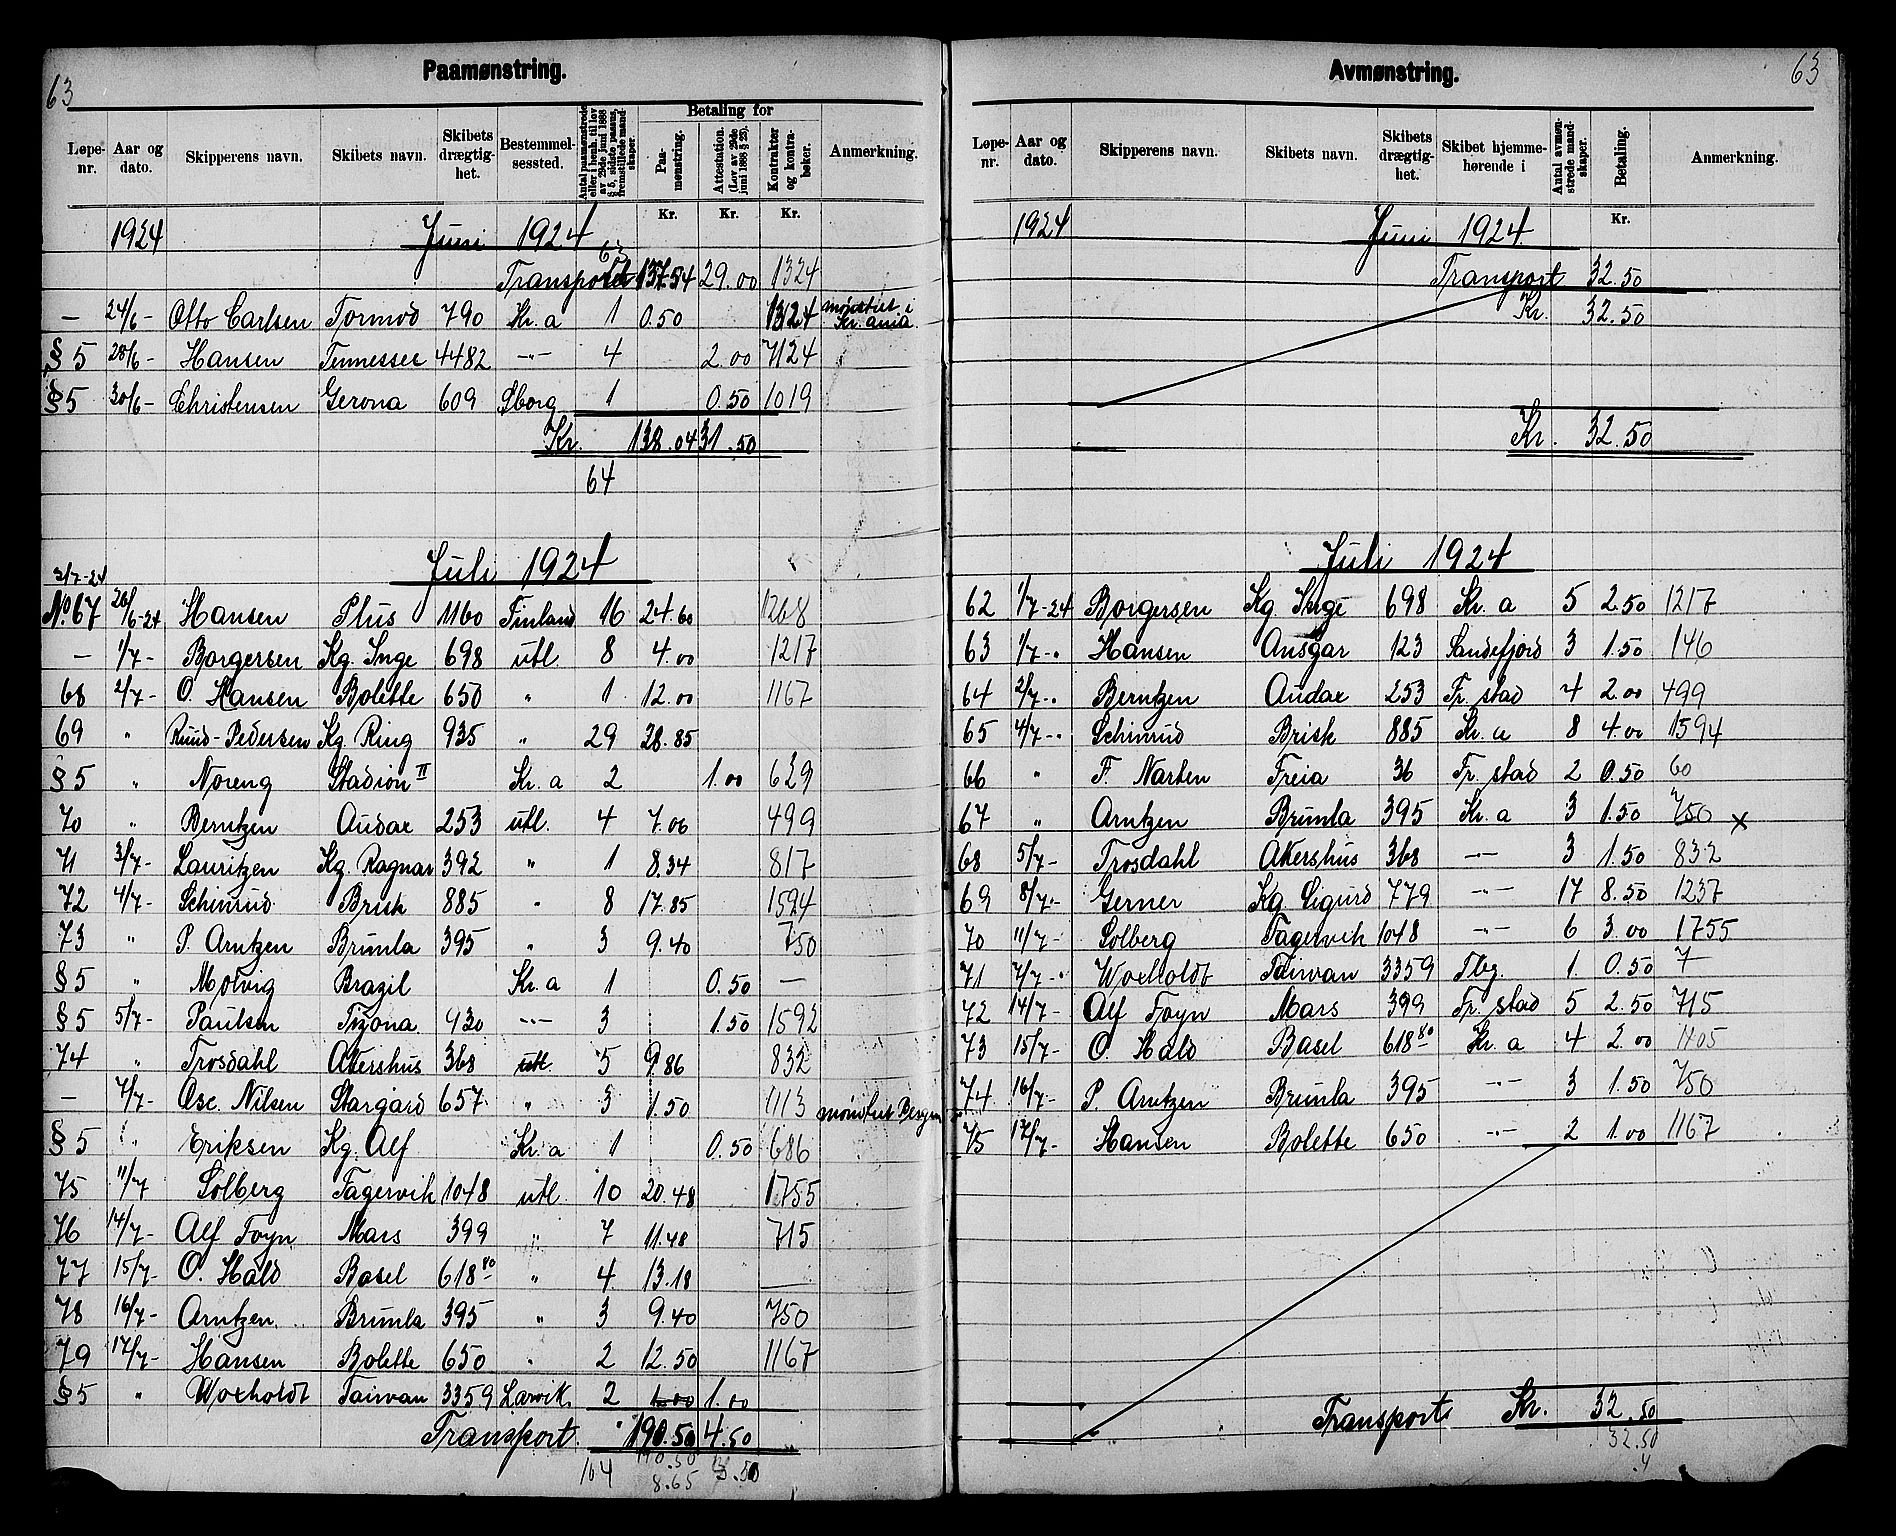 63
Paamønstring.
Løpe-nr. | Aar og dato. | Skipperens navn. | Skibets navn. | Skibets drægtig-het. | Bestemmel-sessted. | Antal paamønstrede eller i henh. til lov av 29de juni 1888 § 5, sidste passus, fremstillede mand-skaper. | Betaling for | Paa-mønstring. Kr. | Attestation. (Lov av 29de juni 1888 § 25). Kr. | Kontrakter og kontra-bøker. Kr. | Anmerkning.
1924 Juni 1924
63
Transport 137.54 29.00 1324
— 24/6- Otto Carlsen Tormod 790 Kr. a 1 0.50 1324 mønstret i Kr. ania
§ 5 28/6- Hansen Tennessee 4482 -"- 4 2.00 7124
§ 5 30/6- Christensen Gerona 609 Sborg 1 0.50 1019
Kr. 138.04 31.50
64
Juli 1924
3/7-24
No. 67 26/6-24 Hansen Plus 1160 Finland 16 24.60 1268
— 1/7- Borgersen Kg. Inge 698 utl 8 4.00 1217
68 2/7- O. Hansen Bolette 650 " 1 12.00 1167
69 " Ruud-Pedersen Kg. Ring 935 " 29 28.85
§ 5 " Noreng Stadion II Kr. a 2 1.00 629
70 " Berntzen Audax 253 utl. 4 7.06 499
71 3/7- Lauritzen Kg. Ragnar 392 " 1 8.34 817
72 4/7- Schinrud Brisk 885 " 8 17.85 1594
73 " P. Arntzen Brunla 395 " 3 9.40 750
§ 5 " Molvig Brazil Kr. a 1 0.50 —
§ 5 5/7- Paulsen Tizona 430 -"- 3 1.50 1592
74 " Trosdahl Akershus 368 utl. 5 9.86 832
— 7/7- Osc. Nilsen Stargard 657 " 3 1.50 1113 mønstret Bergen
§ 5 " Eriksen Kg. Alf Kr. a 1 0.50 686
75 11/7 Solberg Fagervik 1048 utl. 10 20.48 1755
76 14/7- Alf Foyn Mars 399 " 7 11.48 715
77 15/7- O. Hald Basel 618 80 " 4 13.18 —
78 16/7- Arntzen Brunla 395 " 3 9.40 750
79 17/7- Hansen Bolette 650 " 2 12.50 1167
§ 5 " Woxholdt Taiwan 3359 Larvik. 2 1.00 1.00
Transport. 190.50 4.50
164 190.50
8.65
63
Avmønstring.
Løpe-nr. | Aar og dato. | Skipperens navn. | Skibets navn. | Skibets drægtig-het. | Skibet hjemme-hørende i | Antal avmøn-strede mand-skaper. | Betaling. Kr. | Anmerkning.
1924 Juni 1924.
Transport 32.50
Kr. 32.50
Kr. 32.50
Juli 1924
62 1/7-24 Borgersen Kg. Inge 698 Kr. a 5 2.50 1217
63 1/7- Hansen Ansgar 123 Sandefjord 3 1.50 146
64 2/7- Berntzen Audax 253 Fr. stad 4 2.00 499
65 4/7- Schinrud Brisk 885 Kr. a 8 4.00 1594
66 " F. Narten Freia 36 Fr. stad 2 0.50 60
67 " Arntzen Brunla 395 Kr. a 3 1.50 750 x
68 5/7- Trosdahl Akershus 368 -"- 3 1.50 832
69 8/7- Gerner Kg Sigurd 779 -"- 17 8.50 1237
70 11/7- Solberg Fagervik 1048 -"- 6 3.00 1755
71 7/7- Woxholdt Taiwan 3359 Tbg. 1. 0.50 7
72 14/7- Alf Foyn Mars 399 Fr. stad 5 2.50 715
73 15/7- O. Hald Basel 618 80 Kr. a 4 2.00 1405
74 16/7- P. Arntzen Brunla 395 -"- 3 1.50 750
75 17/7- Hansen Bolette 650 -"- 2 1.00 1167
Transport Kr. 32.50
32.50